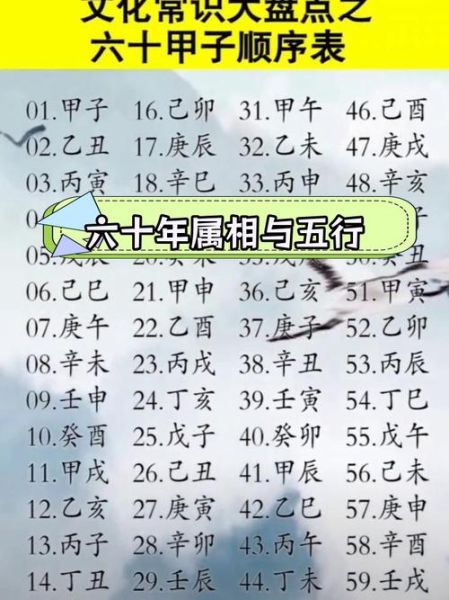 文化常识大盘点之
六十甲子顺序表
01.甲子 16.己卯 31.甲午 46.己酉
02.乙丑 17.庚辰 32.乙未 47.庚戌
03.丙寅 18.辛巳 33.丙申 48.辛亥
子
六十年属相与五行
05.戊辰 癸丑
06.己巳 21.甲申 36.己亥 51.甲寅
07.庚午 22.乙酉 37.庚子 52.乙卯
08.辛未 23.丙戌 38.辛丑 53.丙辰
09.壬申 24.丁亥 39.壬寅 54.丁巳
10.癸酉 25.戊子 40.癸卯 55.戊午
11.甲戌 26.己丑 41.甲辰 56.己未
12.乙亥 27.庚寅 42.乙巳 57.庚申
13.丙子 28.辛卯 43.丙午 58.辛酉
14.丁丑 29.壬辰 44.丁未 59.壬戌